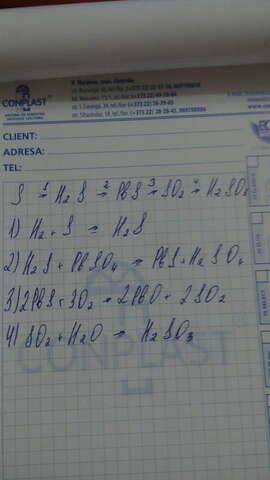 CONPLAST
CLIENT:
ADRESA:
TEL:
S →¹ H₂S →² PbS →³ SO₂ →⁴ H₂SO₃
1) H₂ + S = H₂S
2) H₂S + PbSO₄ = PbS + H₂SO₄
3) 2PbS + 3O₂ = 2PbO + 2SO₂
4) SO₂ + H₂O = H₂SO₃
CONPLAST